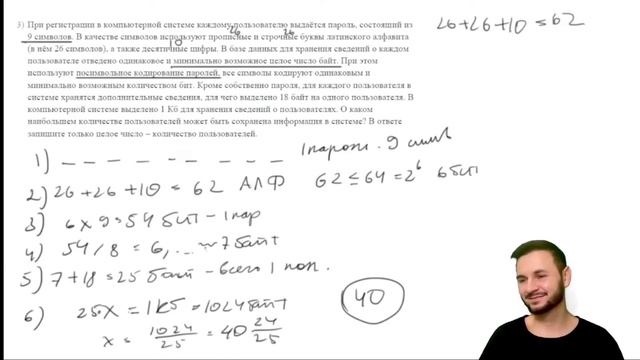 3) При регистрации в компьютерной системе каждому пользователю выдаётся пароль, состоящий из
9 символов. В качестве символов используют прописные и строчные буквы латинского алфавита
(в нём 26 символов), а также десятичные цифры. В базе данных для хранения сведений о каждом
пользователе отведено одинаковое и минимально возможное целое число байт. При этом
используют посимвольное кодирование паролей, все символы кодируют одинаковым и
минимально возможным количеством бит. Кроме собственно пароля, для каждого пользователя в
системе хранятся дополнительные сведения, для чего выделено 18 байт на одного пользователя. В
компьютерной системе выделено 1 Кб для хранения сведений о пользователях. О каком
наибольшем количестве пользователей может быть сохранена информация в системе? В ответе
запишите только целое число – количество пользователей.
26+26+10=62
26 26
10
1) _ _ _ _ _ _ _ _ _ 1 парол. 9 симв
2) 26+26+10=62 АЛФ 62≤64=2^6 6 бит
3) 6×9=54 бит - 1 пар
4) 54/8=6,... ~ 7 байт
5) 7+18=25 байт - всего 1 пол.
6) 25·x=1кб=1024 байт
x=1024/25=40 24/25
40